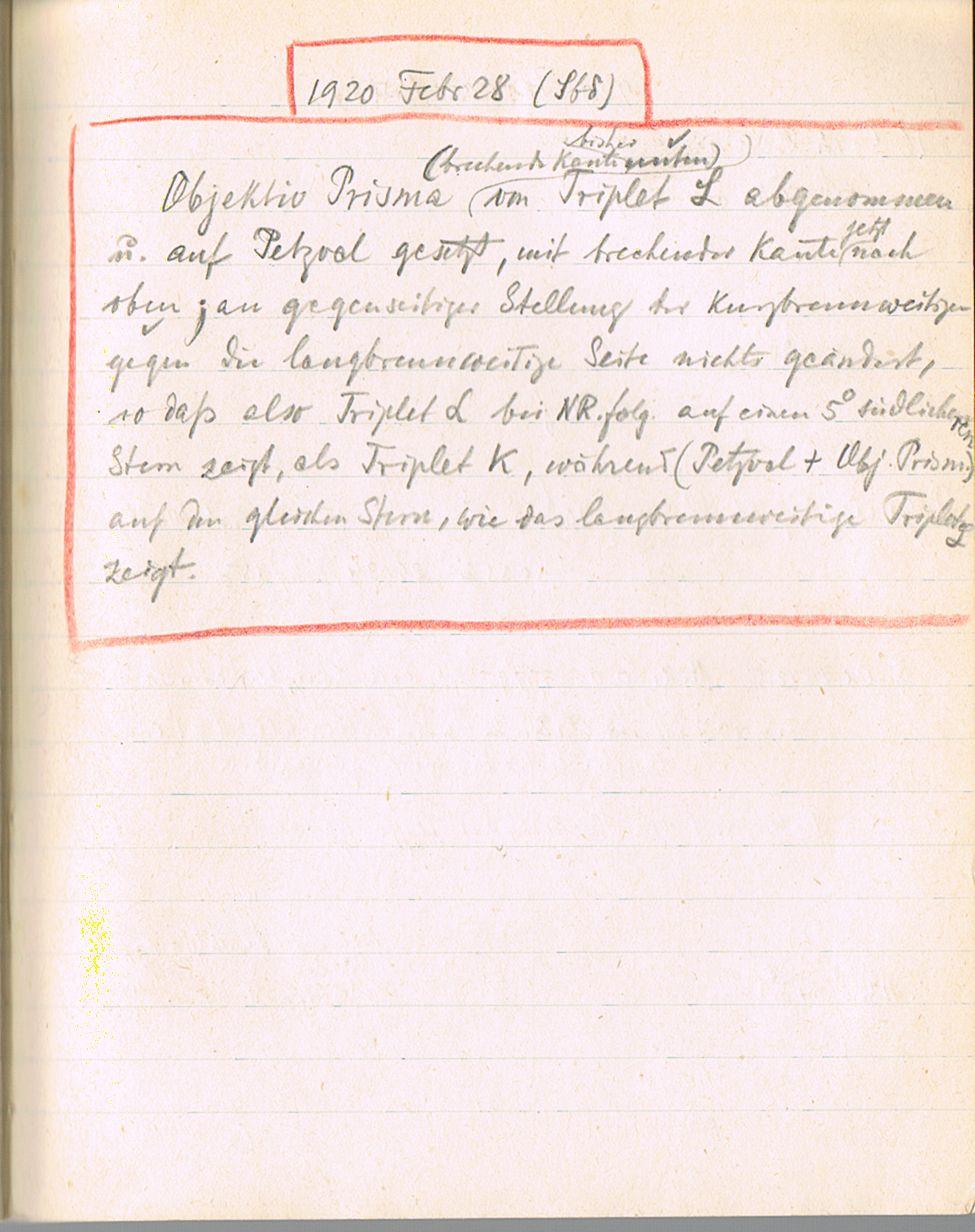 1920 Febr 28 (Sbd)
bisher
(brechende Kante unten)
Objektiv Prisma von Triplet L abgenommen
jetzt
u. auf Petzval gesetzt, mit brechender Kante nach
oben; an gegenseitiger Stellung der Kurzbrennweitigen
gegen die langbrennweitige Seite nichts geändert,
so daß also Triplet L bei NR. folg. auf einen 5° südlicheren
Stern zeigt, als Triplet K, während (Petzval + Obj. Prisma)
auf den gleichen Stern, wie das langbrennweitige Triplet L
zeigt.